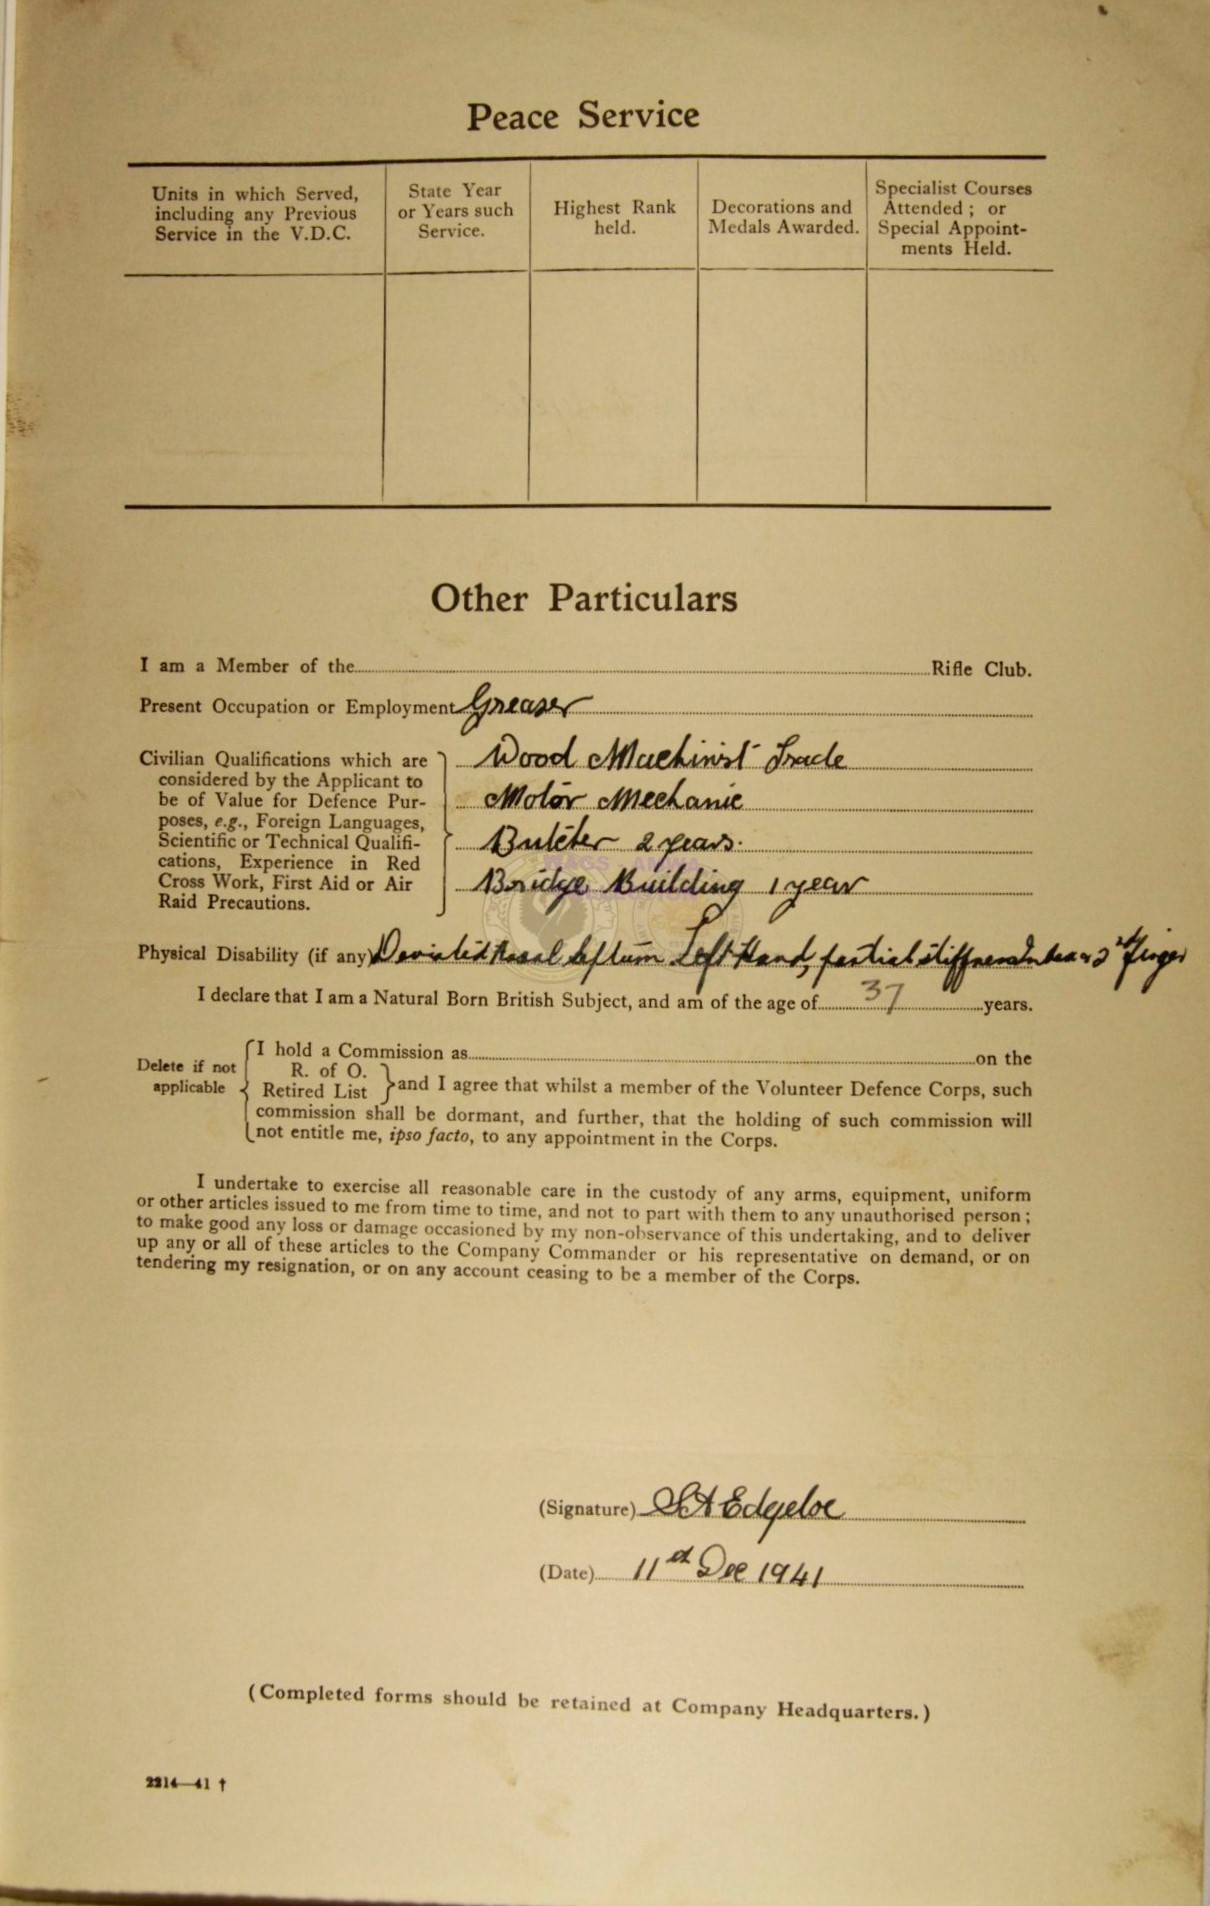 Peace Service
Units in which Served,
including any Previous
Service in the V.D.C.
State Year
or Years such
Service.
Highest Rank
held.
Decorations and
Medals Awarded.
Specialist Courses
Attended ; or
Special Appoint-
ments Held.
Other Particulars
I am a Member of the Rifle Club.
Present Occupation or Employment Greaser
Civilian Qualifications which are
considered by the Applicant to
be of Value for Defence Pur-
poses, e.g., Foreign Languages,
Scientific or Technical Qualifi-
cations, Experience in Red
Cross Work, First Aid or Air
Raid Precautions.
Wood Machinist Trade
Motor Mechanic
Butcher 2 years.
Bridge Building 1 year
Physical Disability (if any) Deviated Nasal Septum Left Hand, partial stiffness Index & 2nd finger
I declare that I am a Natural Born British Subject, and am of the age of 37 years.
Delete if not
applicable
I hold a Commission as on the
R. of O.
Retired List
and I agree that whilst a member of the Volunteer Defence Corps, such
commission shall be dormant, and further, that the holding of such commission will
not entitle me, ipso facto, to any appointment in the Corps.
I undertake to exercise all reasonable care in the custody of any arms, equipment, uniform
or other articles issued to me from time to time, and not to part with them to any unauthorised person ;
to make good any loss or damage occasioned by my non-observance of this undertaking, and to deliver
up any or all of these articles to the Company Commander or his representative on demand, or on
tendering my resignation, or on any account ceasing to be a member of the Corps.
(Signature) S A Edgeloe
(Date) 11th Dec 1941
(Completed forms should be retained at Company Headquarters.)
2214—41 †